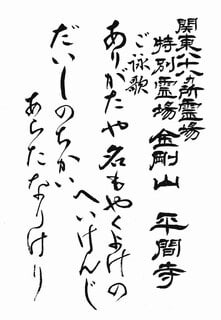 関東八十八ヵ所霊場
特別霊場 金剛山 平間寺
ご詠歌
ありがたや名もやくよけの
へいけんじ
だいしのちかい
あらたなりけり